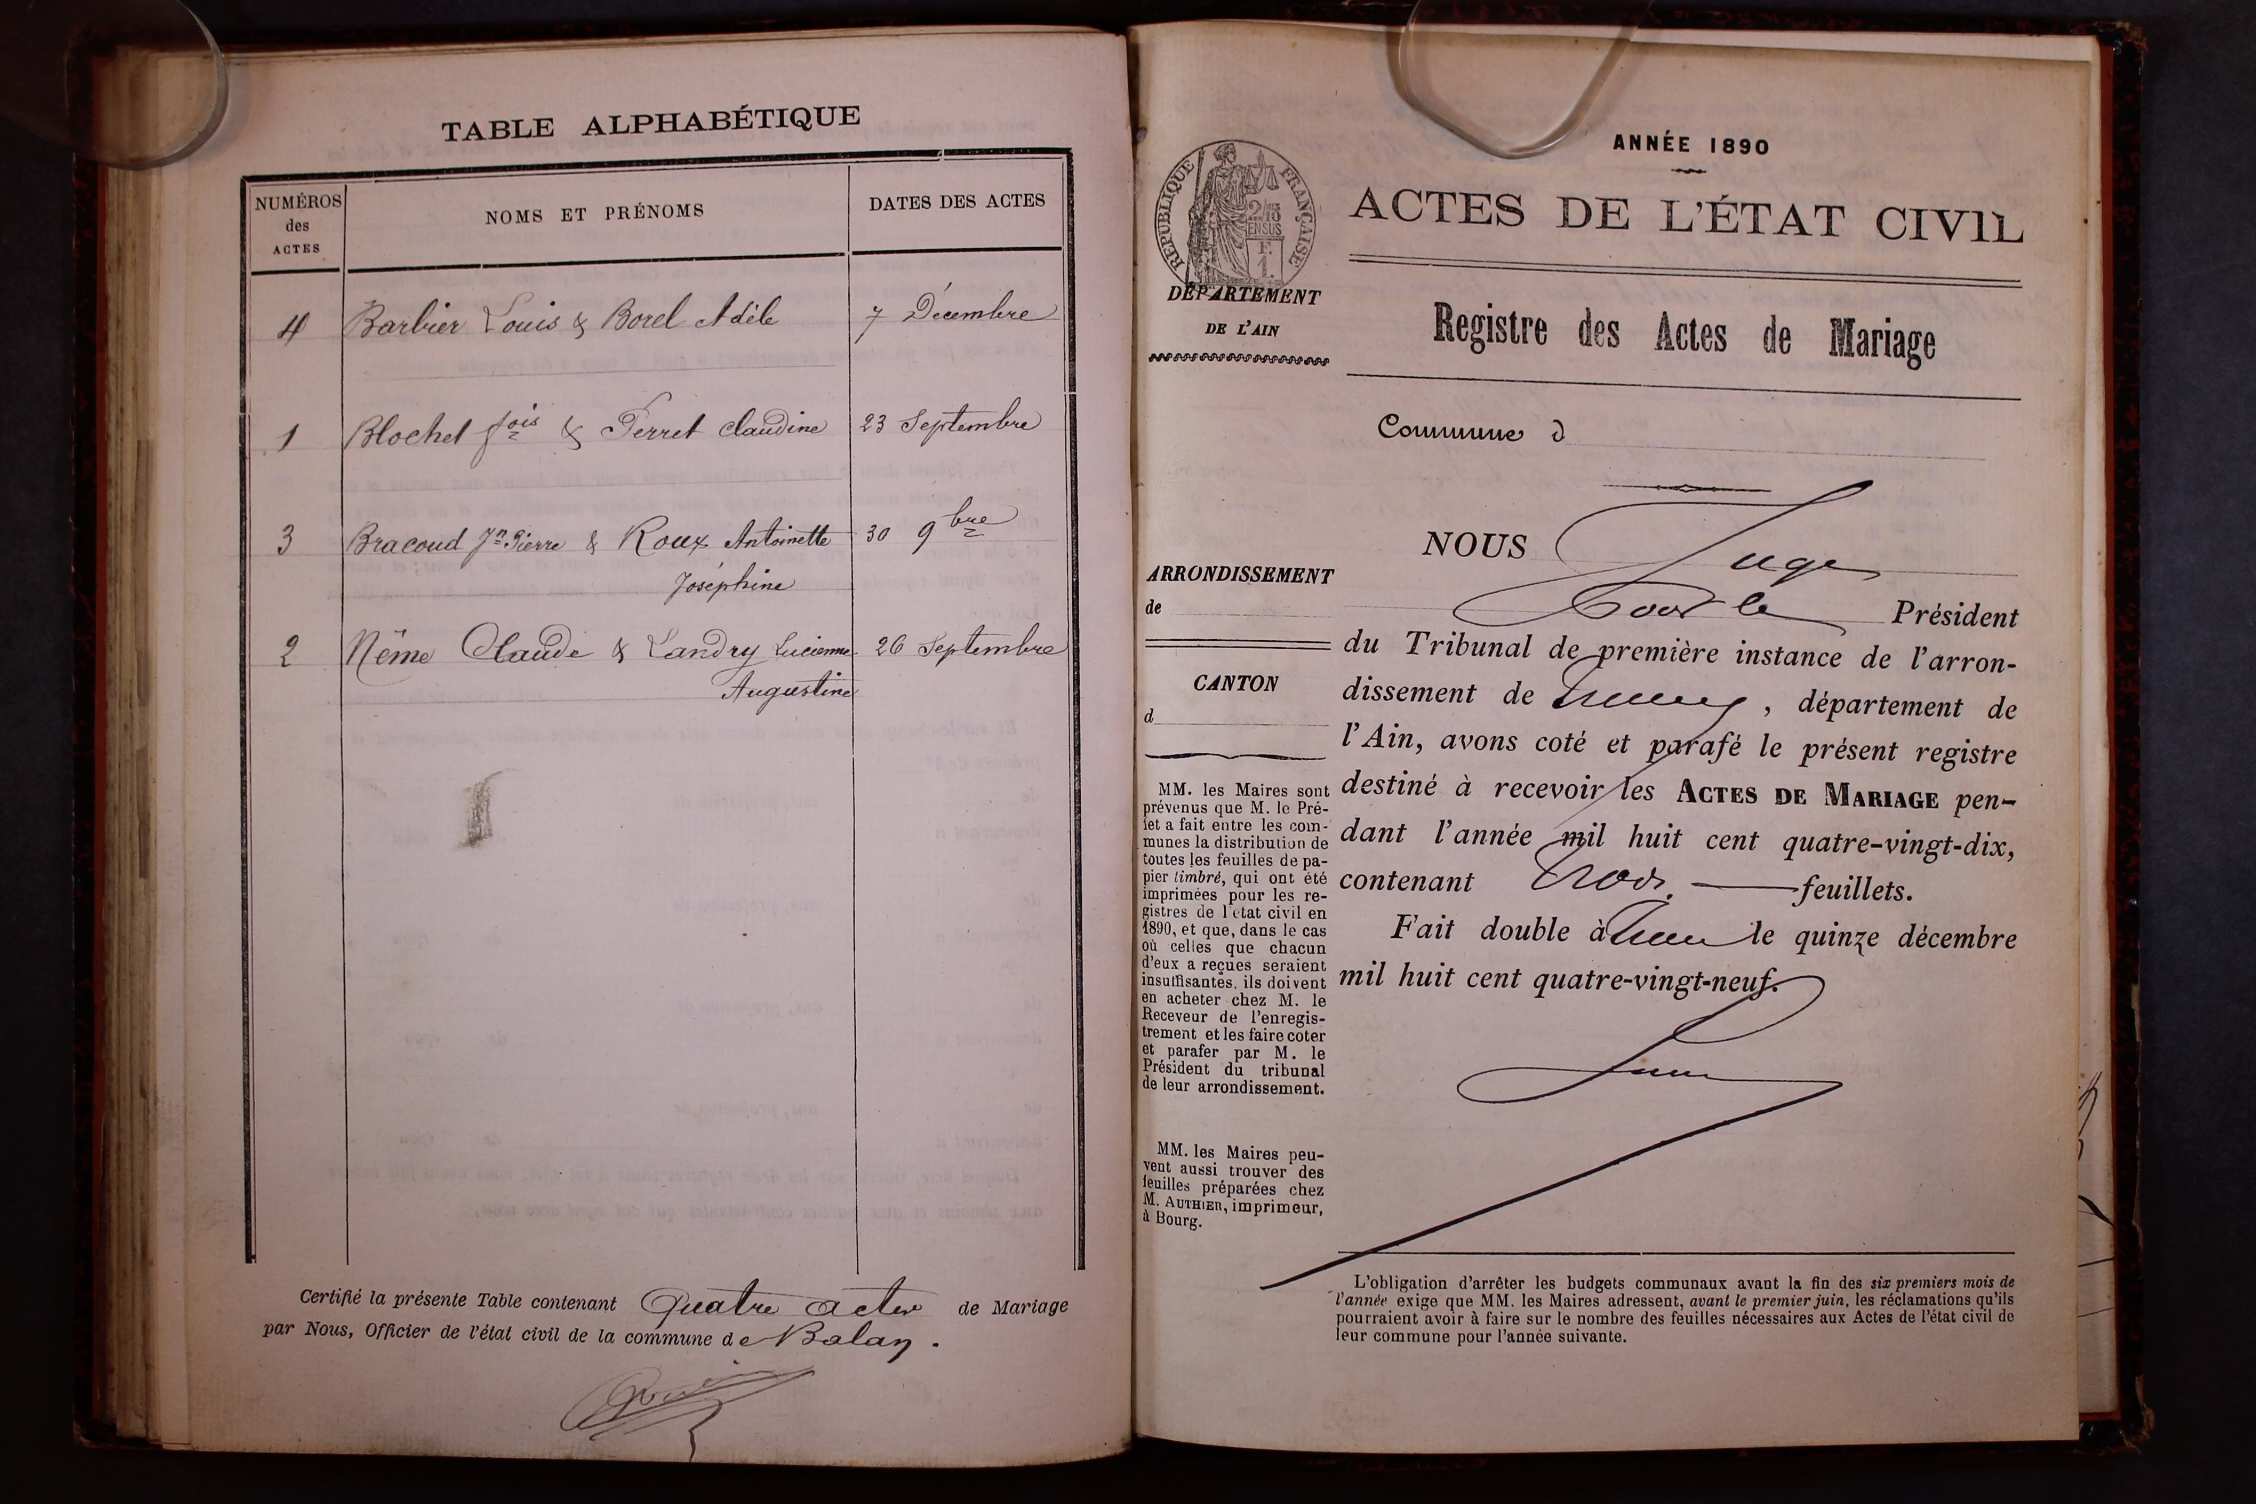 TABLE ALPHABÉTIQUE
NUMÉROS
des
ACTES
NOMS ET PRÉNOMS
DATES DES ACTES
4 Barbier Louis & Borel Adèle 7 Décembre
1 Blochet fois & Perret Claudine 23 Septembre
3 Bracoud Jn Pierre & Roux Antoinette 30 9bre
Joséphine
2 Nême Claude & Landry Lucienne 26 Septembre
Augustine
Certifié la présente Table contenant Quatre actes de Mariage
par Nous, Officier de l'état civil de la commune de Balan.
ANNÉE 1890
RÉPUBLIQUE FRANÇAISE
2/10
EN SUS
F.
1.
ACTES DE L'ÉTAT CIVIL
DÉPARTEMENT
DE L'AIN
Registre des Actes de Mariage
Commune d
NOUS Juge
ARRONDISSEMENT
de
Pour le Président
du Tribunal de première instance de l'arron-
dissement de Trévoux, département de
l'Ain, avons coté et parafé le présent registre
destiné à recevoir les ACTES DE MARIAGE pen-
dant l'année mil huit cent quatre-vingt-dix,
contenant trois feuillets.
Fait double à le quinze décembre
mil huit cent quatre-vingt-neuf.
CANTON
d
MM. les Maires sont
prévenus que M. le Pré-
fet a fait entre les com-
munes la distribution de
toutes les feuilles de pa-
pier timbré, qui ont été
imprimées pour les re-
gistres de l'état civil en
1890, et que, dans le cas
où celles que chacun
d'eux a reçues seraient
insuffisantes, ils doivent
en acheter chez M. le
Receveur de l'enregis-
trement et les faire coter
et parafer par M. le
Président du tribunal
de leur arrondissement.
MM. les Maires peu-
vent aussi trouver des
feuilles préparées chez
M. AUTHIER, imprimeur,
à Bourg.
L'obligation d'arrêter les budgets communaux avant la fin des six premiers mois de
l'année exige que MM. les Maires adressent, avant le premier juin, les réclamations qu'ils
pourraient avoir à faire sur le nombre des feuilles nécessaires aux Actes de l'état civil de
leur commune pour l'année suivante.